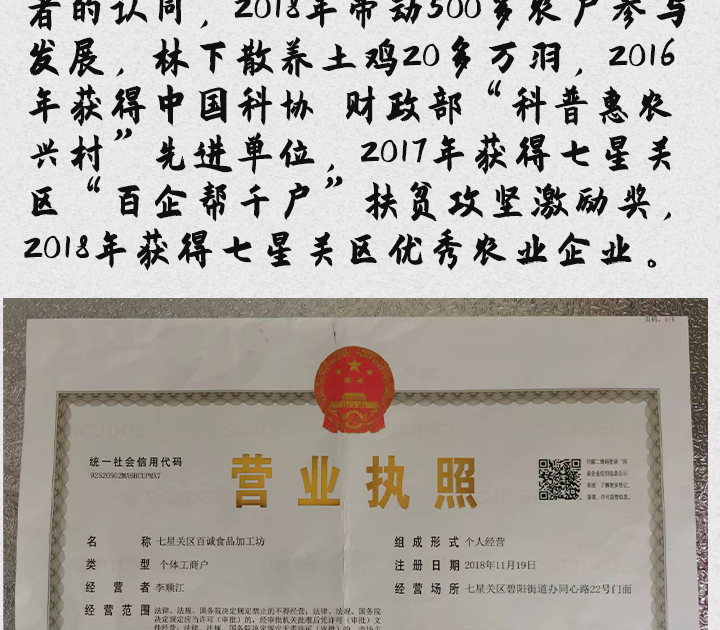 者的认同，2018年带动500多农户参与
发展，林下散养土鸡20多万羽，2016
年获得中国科协 财政部“科普惠农
兴村”先进单位，2017年获得七星关
区“百企帮千户”扶贫攻坚激励奖，
2018年获得七星关区优秀农业企业。
页码：1/1
统一社会信用代码
92520502MA6HCEPMX7
营业执照
名 称 七星关区百诚食品加工坊
组成形式 个人经营
类 型 个体工商户
注册日期 2018年11月19日
经营者 李顺江
经营场所 七星关区碧阳街道办同心路22号门面
经营范围 法律、法规、国务院决定规定禁止的不得经营；法律、法规、国务院
决定规定应当许可（审批）的，经审批机关批准后凭许可（审批）文